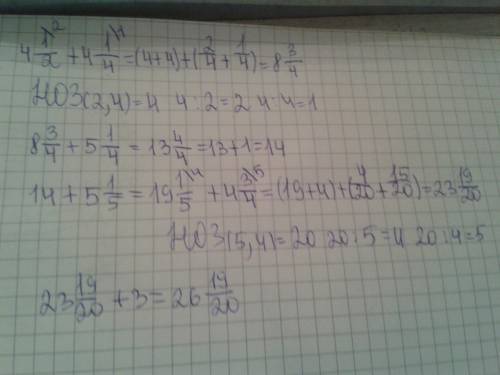 4 1/2 \2 + 4 1/4 \1 = (4+4) + (2/4 + 1/4) = 8 3/4
НОЗ(2,4) = 4 4 : 2 = 2 4 : 4 = 1
8 3/4 + 5 1/4 = 13 4/4 = 13 + 1 = 14
14 + 5 1/5 = 19 1/5 \4 + 4 3/4 \5 = (19+4) + (4/20 + 15/20) = 23 19/20
НОЗ(5,4) = 20 20 : 5 = 4 20 : 4 = 5
23 19/20 + 3 = 26 19/20